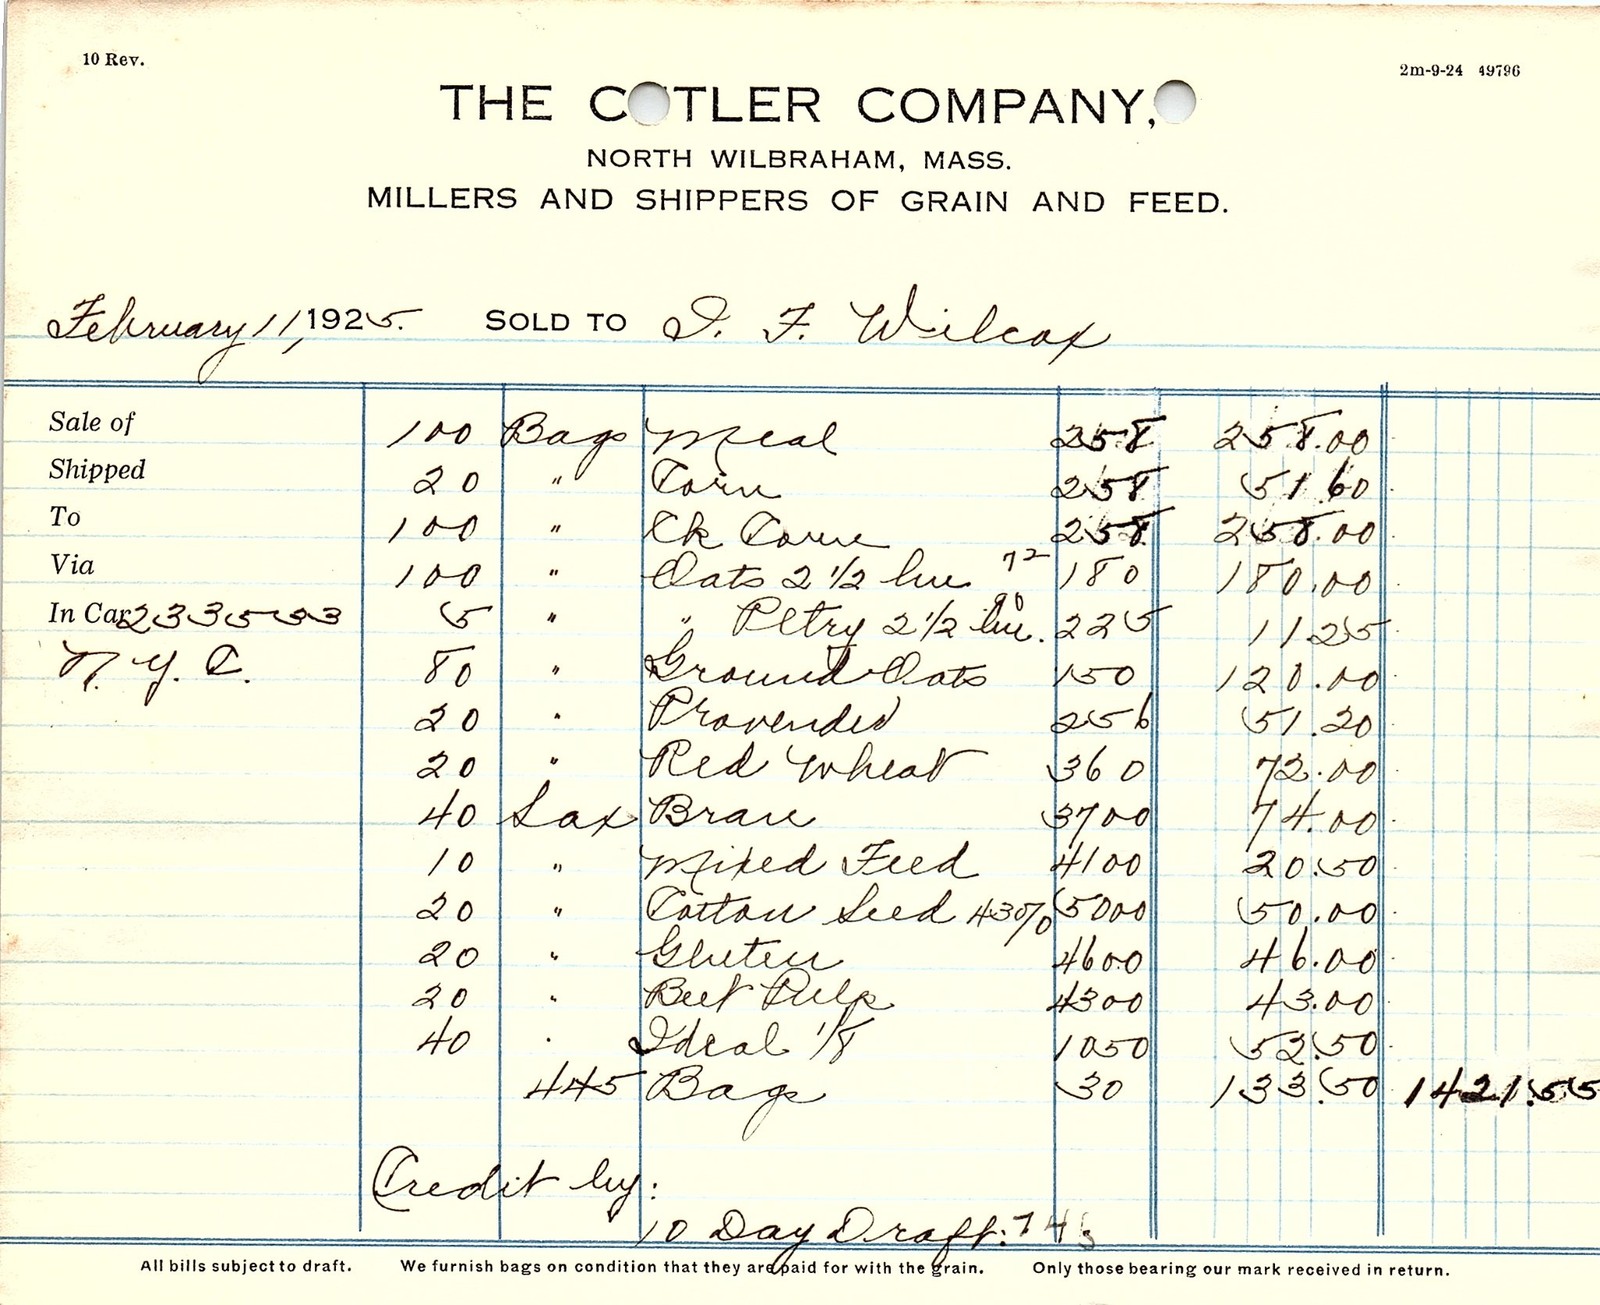 10 Rev.
2m-9-24 49796
THE C TLER COMPANY,
NORTH WILBRAHAM, MASS.
MILLERS AND SHIPPERS OF GRAIN AND FEED.
February 11, 1925. SOLD TO I. F. Wilcox
Sale of 100 Bags Meal 258 258.00
Shipped 20 " Corn 258 51 60
To 100 " Ck Corn 258 258.00
Via 100 " Oats 2 1/2 bu 72 180 180.00
In Car 233533 5 " " Pltry 2 1/2 bu. 90 225 11 25
N. Y. C. 80 " Ground Oats 150 120.00
20 " Provender 256 51.20
20 " Red Wheat 360 72.00
40 Sax Bran 3700 74.00
10 " Mixed Feed 4100 20.50
20 " Cotton Seed 43% 5000 50.00
20 " Gluten 4600 46.00
20 " Beet Pulp 4300 43.00
40 " Ideal 1/8 1050 52.50
445 Bags 30 133.50 1421.55
Credit by:
10 Day Draft:
All bills subject to draft. We furnish bags on condition that they are paid for with the grain. Only those bearing our mark received in return.